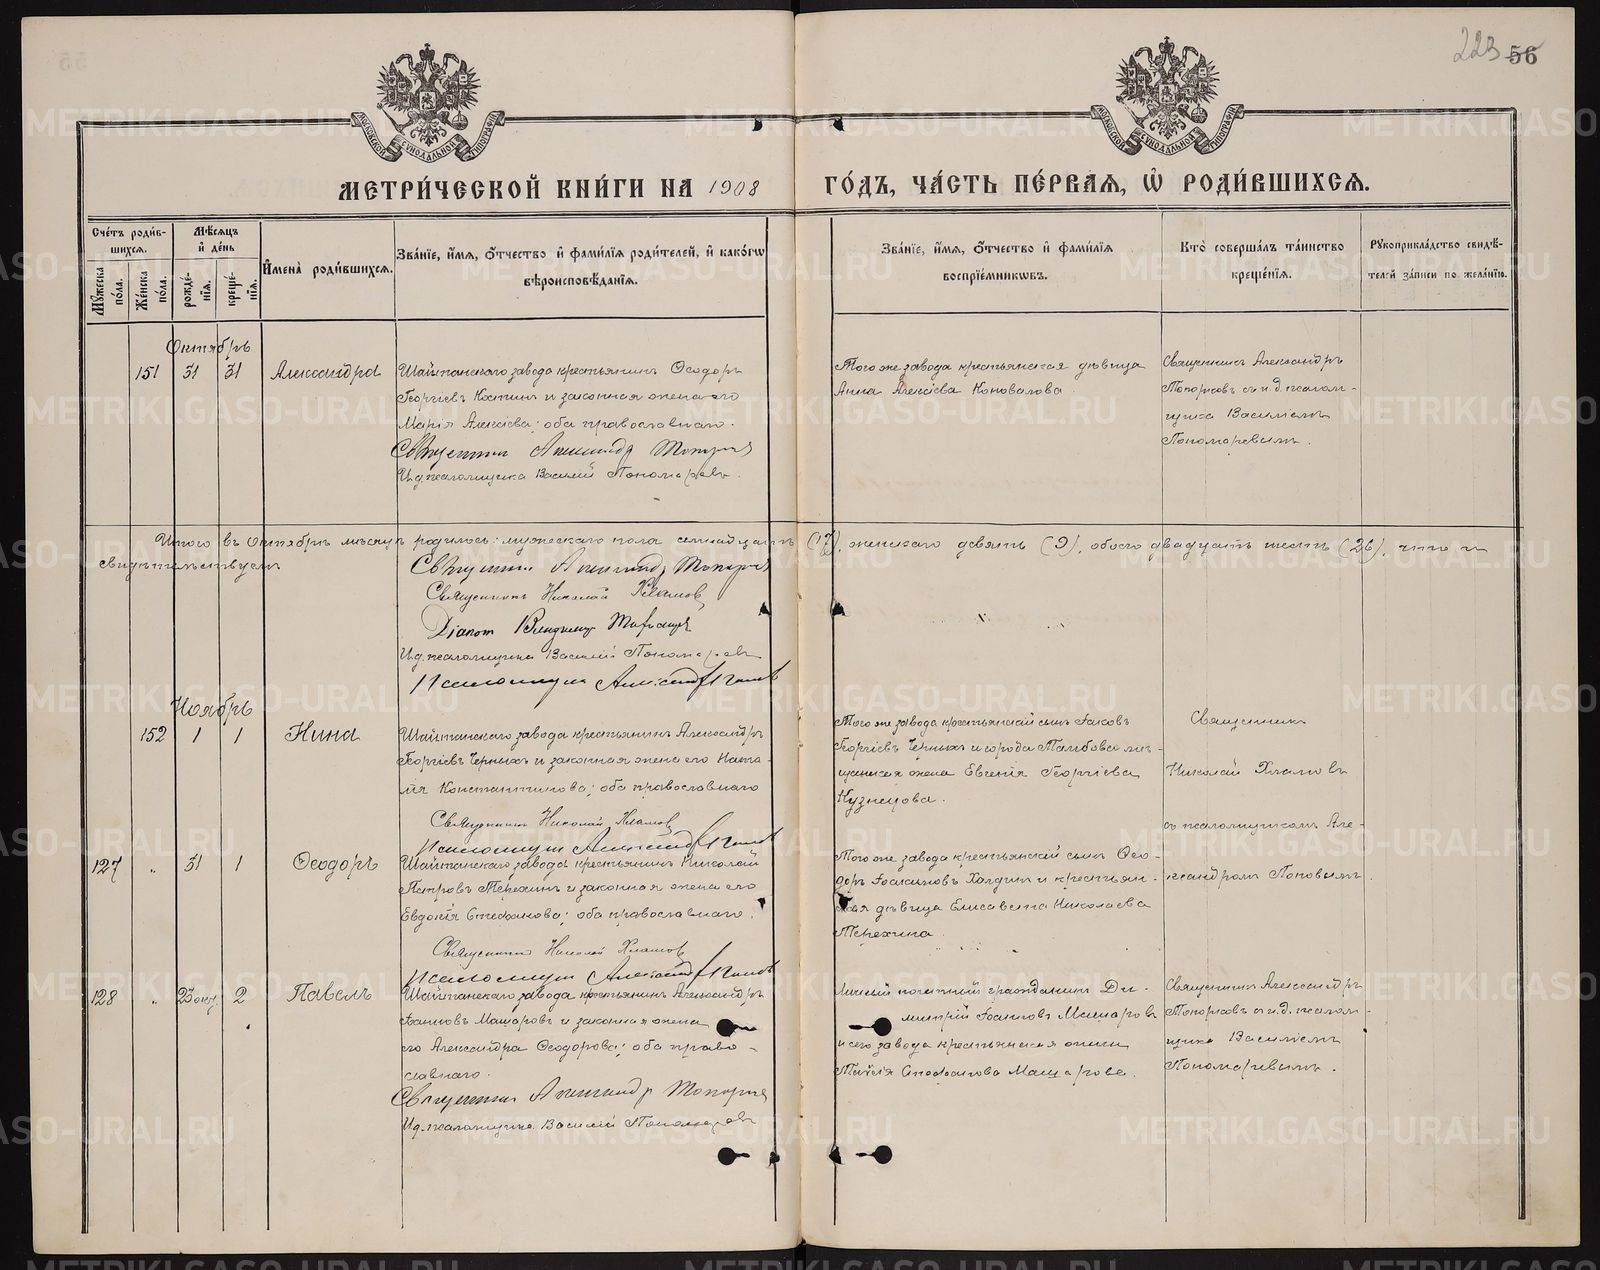 223 56
МОСКОВСКОЙ СУНОДАЛЬНОЙ ТИПОГРАФІИ
МОСКОВСКОЙ СУНОДАЛЬНОЙ ТИПОГРАФІИ
МЕТРИ́ЧЕСКОЙ КНИ́ГИ НА 1908 ГО́ДЪ, ЧА́СТЬ ПЕ́РВАЯ, Ѽ РОДИ́ВШИХСЯ.
Сче́тъ роди́в-
шихся.
Мꙋ́жеска по́ла.
Же́нска по́ла.
Мѣ́сяцъ
и҆ де́нь
рожде́-
нїя.
креще́-
нїя.
И҆мена̀ роди́вшихся.
Зва́нїе, и҆́мя, ѻ҆́тчество и҆ фами́лїя роди́телей, и҆ како́гѡ
вѣроисповѣ́данїя.
Зва́нїе, и҆́мя, ѻ҆́тчество и҆ фами́лїя
воспрїе́мникѡвъ.
Кто̀ соверша́лъ та́инство
креще́нїя.
Рꙋкоприкла́дство свидѣ́-
телей за́писи по жела́нїю.
Октябрь
151 31 31 Александра
Шайтанскаго завода крестьянинъ Ѳеодоръ
Георгіевъ Костинъ и законная жена его
Марія Алексіева; оба православнаго.
Священникъ Александръ Топорковъ
И.д. псаломщика Василій Пономаревъ.
Того же завода крестьянская дѣвица
Анна Алексіева Коновалова
Священникъ Александръ
Топорковъ съ и.д. псалом-
щика Василіемъ
Пономаревымъ.
Итого въ Октябрѣ мѣсяцѣ родилось: мужескаго пола семнадцать (17), женскаго девять (9), обоего двадцать шесть (26), что и
свидѣтельствуемъ
Священникъ Александръ Топорковъ
Священникъ Николай Хламов
Діаконъ Владимир
И.д. псаломщика Василій Пономаревъ
Псаломщик Александръ Поповъ
Ноябрь
152 1 1 Нина
Шайтанскаго завода крестьянинъ Александръ
Георгіевъ Черныхъ и законная жена его Ната-
лія Константинова; оба православнаго
Священникъ Николай Хламов
Псаломщик Александръ Поповъ
Того же завода крестьянскій сынъ Іаковъ
Георгіевъ Черныхъ и города Тамбова мѣ-
щанская жена Евгенія Георгіева
Кузнецова.
Священникъ
Николай Хламовъ
съ псаломщикомъ Але-
ксандромъ Поповымъ.
127 " 31 1 Ѳеодоръ
Шайтанскаго завода крестьянинъ Николай
Петровъ Терехинъ и законная жена его
Евдокія Стефанова; оба православнаго.
Священникъ Николай Хламов
Псаломщик Александръ Поповъ
Того же завода крестьянскій сынъ Ѳео-
доръ Іоакимовъ и крестьян-
ская дѣвица Елисавета Николаева
Терехина.
128 " 23 окт 2 Павелъ
Шайтанскаго завода крестьянинъ Александръ
Іоанновъ Машаровъ и законная жена
его Александра Ѳеодорова; оба право-
славнаго.
Священникъ Александръ Топорковъ
И.д. псаломщика Василій Пономаревъ
Личный почетный гражданинъ Ди-
митрій Іоанновъ Машаровъ
и сего завода крестьянская жена
Таисія Стефанова Машарова.
Священникъ Александръ
Топорковъ съ и.д. псалом-
щика Василіемъ
Пономаревымъ.
METRIKI.GASO-URAL.RU